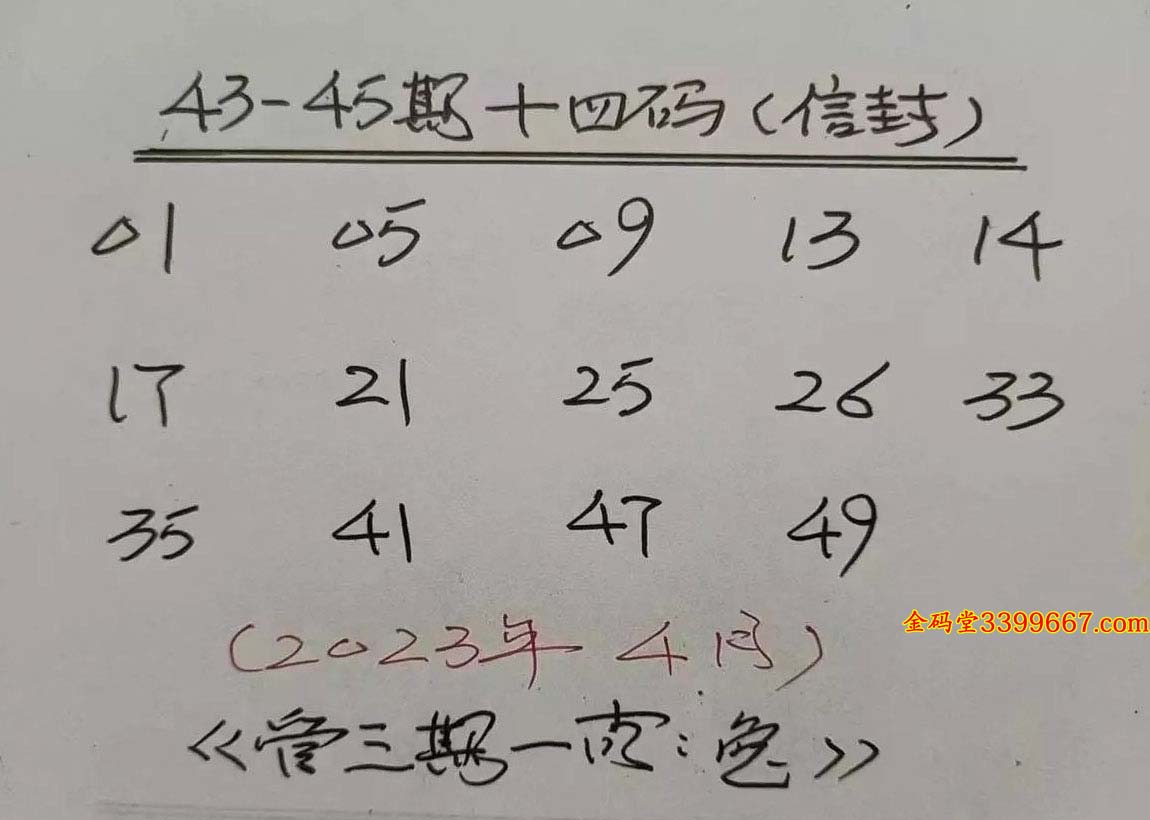 43-45期十四码(信封)
01 05 09 13 14
17 21 25 26 33
35 41 47 49
金码堂3399667.com
(2023年 4月)
《管三期一肖:兔》